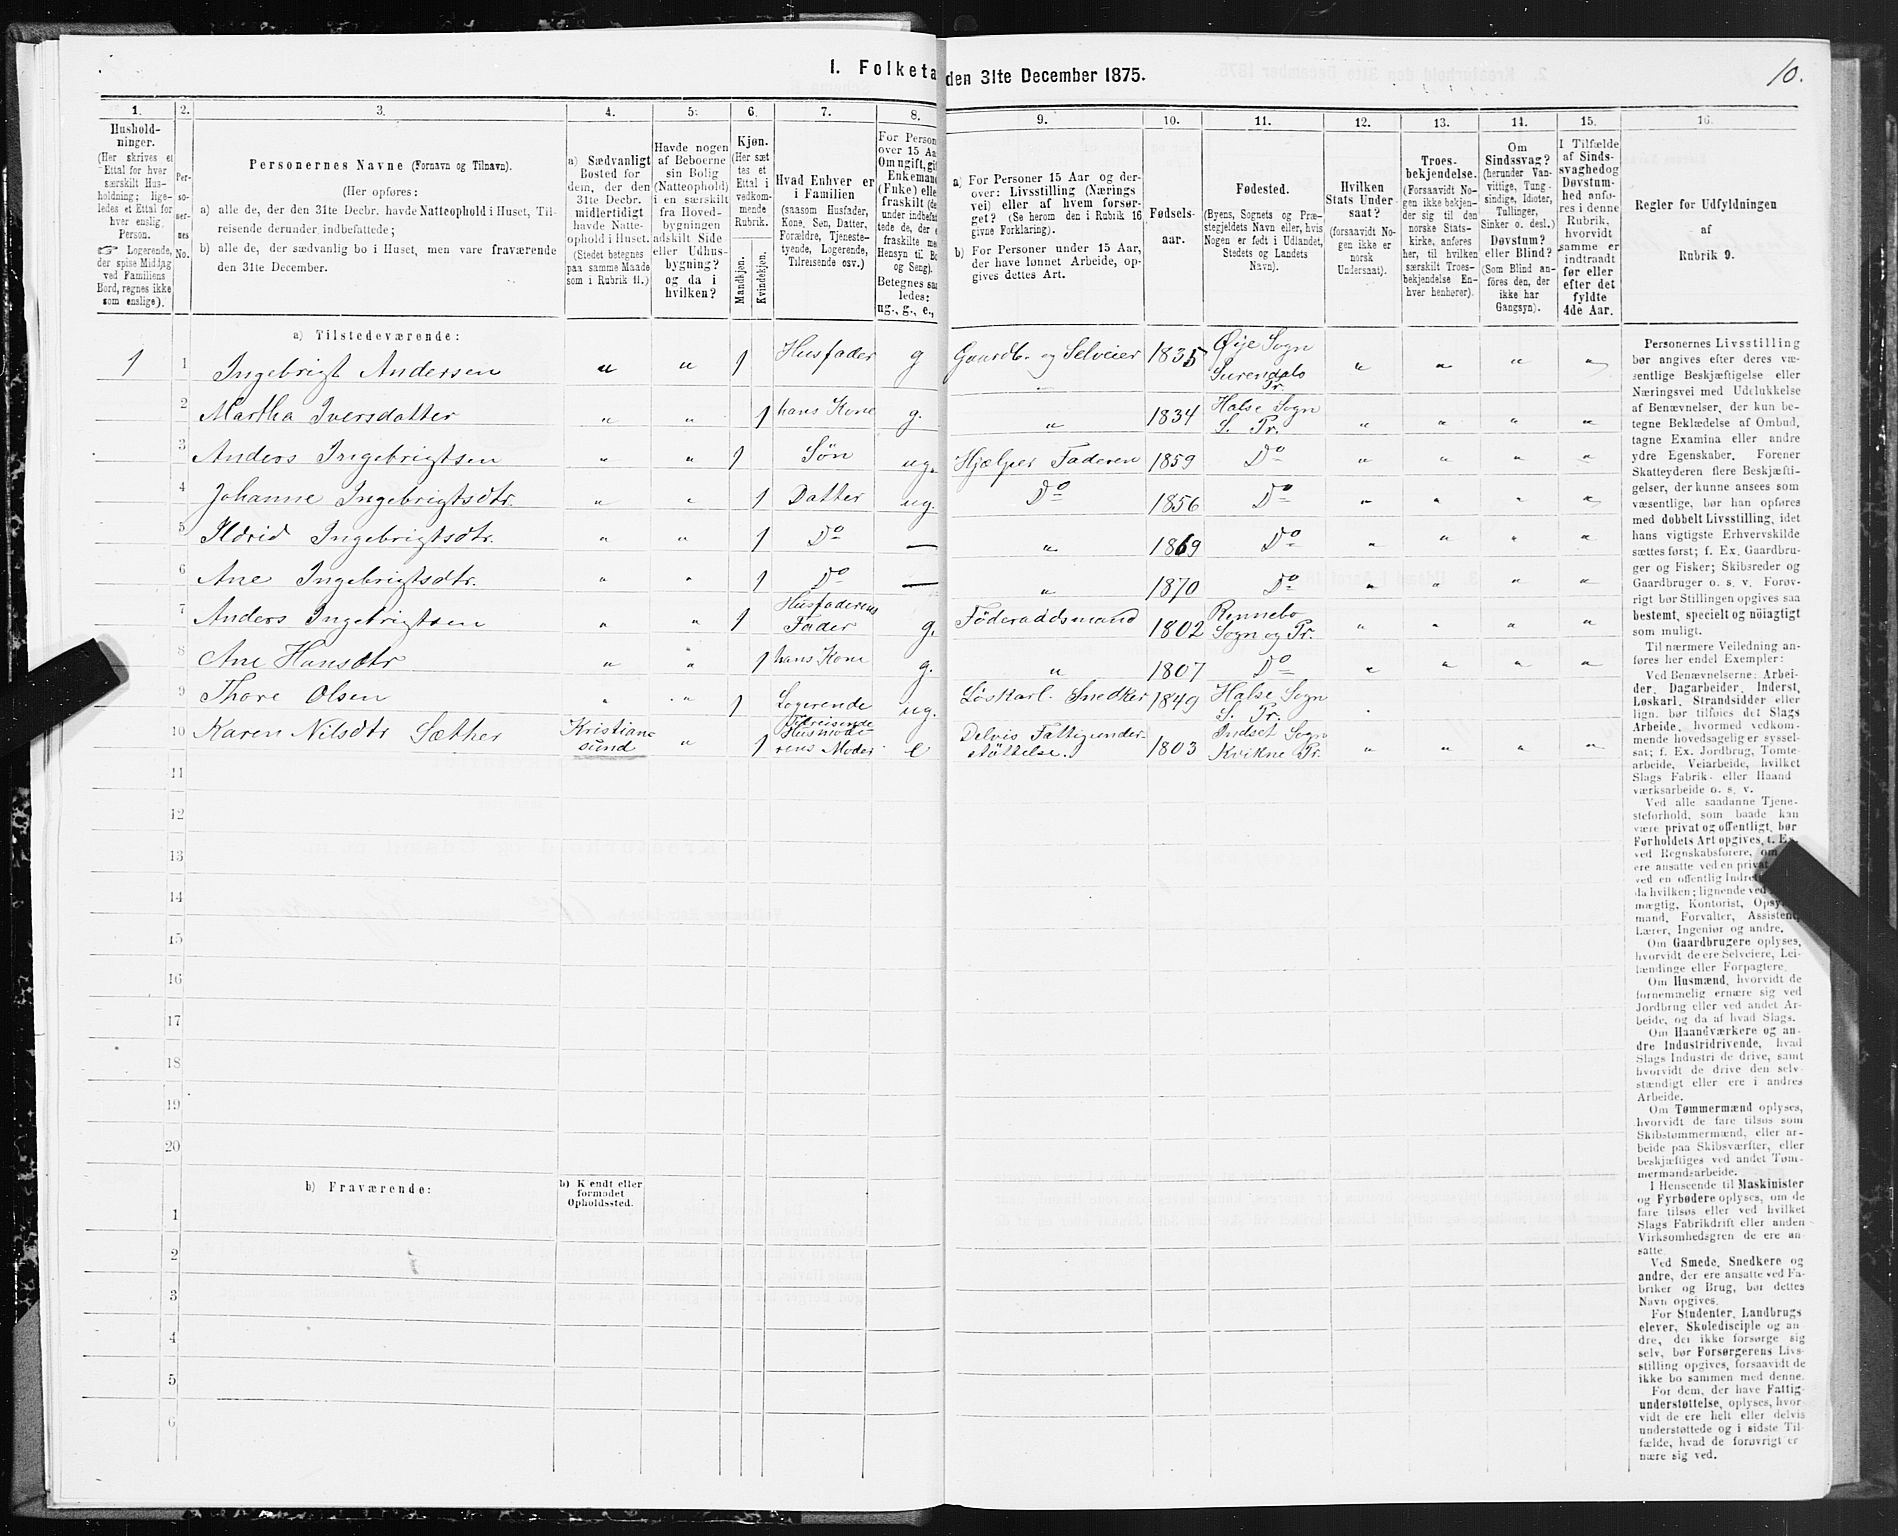 1. Folketa den 31te December 1875.
10.
1. 2. 3. 4. 5. 6. 7. 8. 9. 10. 11. 12. 13. 14. 15. 16.
Hushold-
ninger.
(Her skrives et
Ettal for hver
særskilt Hus-
holdning; lige-
ledes et Ettal for
hver enslig
Person.
☞ Logerende,
der spise Middag
ved Familiens
Bord, regnes ikke
som enslige).
Per-
so-
ner-
nes
No.
Personernes Navne (Fornavn og Tilnavn).
(Her opføres:
a) alle de, der den 31te Decbr. havde Natteophold i Huset, Til-
reisende derunder indbefattede;
b) alle de, der sædvanlig bo i Huset, men vare fraværende
den 31te December.
a) Sædvanligt
Bosted for
dem, der den
31te Decbr.
midlertidigt
havde Natte-
ophold i Huset.
(Stedet betegnes
paa samme Maade
som i Rubrik 11.)
Havde nogen
af Beboerne
sin Bolig
(Natteophold)
i en særskilt
fra Hoved-
bygningen
adskilt Side
eller Udhus-
bygning?
og da i
hvilken?
Kjøn.
(Her sæt-
tes et
Ettal i
vedkom-
mende
Rubrik.
Mandkjøn.
Kvindekjøn.
Hvad Enhver er
i Familien
(saasom Husfader,
Kone, Søn, Datter,
Forældre, Tjeneste-
tyende, Logerende,
Tilreisende osv.)
For Person
over 15 Aa
Om ugift, gif
Enkemand
(Enke) elle
fraskilt (de
under indbefat
tede de, der e
fraskilte me
Hensyn til Bo
og Seng).
Betegnes saa
ledes:
ug., g., e.,
a) For Personer 15 Aar og der-
over: Livsstilling (Nærings
vei) eller af hvem forsør-
get? (Se herom den i Rubrik 16
givne Forklaring).
b) For Personer under 15 Aar,
der have lønnet Arbeide, op-
gives dettes Art.
Fødsels-
aar.
Fødested.
(Byens, Sognets og Præ-
stegjeldets Navn eller, hvis
Nogen er født i Udlandet,
Stedets og Landets
Navn).
Hvilken
Stats Under
saat?
(forsaavidt No-
gen ikke er
norsk
Undersaat).
Troes-
bekjendelse.
(Forsaavidt No-
gen ikke bekjen-
der sig til den
norske Stats-
kirke, anføres
her, til hvilken
særskilt Troes-
bekjendelse En-
hver henhører).
Om
Sindssvag?
(herunder Van-
vittige, Tung-
sindige, Idioter,
Tullinger,
Sinker o. desl.)
Døvstum?
eller Blind?
(Som Blind an-
føres den, der
ikke har
Gangsyn).
I Tilfælde
af Sinds-
svaghedog
Døvstum-
hed anfø-
res i denne
Rubrik,
hvorvidt
samme er
indtraadt
før eller
efter det
fyldte
4de Aar.
Regler for Udfyldningen
af
Rubrik 9.
a) Tilstedeværende:
1 1 Ingebrigt Andersen „ „ 1 Husfader g Gaardb. og Selveier 1835 Øije Sogn Surendals Pr. „ „ „ „
2 Martha Iversdatter „ „ 1 hans Kone g. „ 1834 Halse Sogn S. Pr. „ „ „ „
3 Anders Ingebrigtsen „ „ 1 Søn ug. Hjælper Faderen 1859 Do „ „ „ „
4 Johanne Ingebrigtsdtr. „ „ 1 Datter ug. Do 1856 Do „ „ „ „
5 Ildrid Ingebrigtsdtr. „ „ 1 Do — „ 1869 Do „ „ „ „
6 Ane Ingebrigtsdtr. „ „ 1 Do — „ 1870 Do „ „ „ „
7 Anders Ingebrigtsen „ „ 1 Husfaderens Fader g. Föderaadsmand 1802 Rennebo Sogn og Pr. „ „ „ „
8 Ane Hansdtr „ „ 1 hans Kone g. „ 1807 Do „ „ „ „
9 Thore Olsen „ „ 1 Logerende ug. Løskarl. Snedker 1849 Halse Sogn S. Pr.
10 Karen Nilsdtr Sæther Kristiansund „ 1 Tilreisende Husmoderens Moder e Delvis Fattigunderstøttelse. 1803 Indset Sogn Kvikne Pr. „ „ „ „
11
12
13
14
15
16
17
18
19
20
b) Fraværende:
b) Kjendt eller
formodet
Opholdssted.
1
2
3
4
5
6
Personernes Livsstilling
bør angives efter deres væ-
sentlige Beskjæftigelse eller
Næringsvei med Udelukkelse
af Benævnelser, der kun be-
tegne Beklædelse af Ombud,
tagne Examina eller andre
ydre Egenskaber. Forener
Skatteyderen flere Beskjæfti-
gelser, der kunne ansees som
væsentlige, bør han opføres
med dobbelt Livsstilling, idet
hans vigtigste Erhvervskilde
sættes først; f. Ex. Gaardbru-
ger og Fisker; Skibsreder og
Gaardbruger o. s. v. Forøv-
rigt bør Stillingen opgives saa
bestemt, specielt og nöiagtigt
som muligt.
Til nærmere Veiledning an-
føres her endel Exempler:
Ved Benævnelserne: Arbei-
der, Dagarbeider, Inderst,
Løskarl, Strandsidder eller
lign. bør tilføies det Slags
Arbeide, hvormed vedkom-
mende hovedsagelig er syssel-
sat; f. Ex. Jordbrug, Tomte-
arbeide, Veiarbeide, hvilket
Slags Fabrik- eller Haand
værksarbeide o. s. v.
Ved alle saadanne Tjene-
steforhold, som baade kan
være privat og offentligt, bør
Forholdets Art opgives, t. Ex.
ved Regnskabsførere, om
ere ansatte ved en privat
ved en offentlig Indret
da hvilken; lignende ved
mægtig, Kontorist, Opsy
mand, Forvalter, Assistent,
Lærer, Ingeniør og andre.
Om Gaardbrugere oplyses,
hvorvidt de ere Selveiere, Lei-
lændinge eller Forpagtere.
Om Husmænd, hvorvidt de
fornemmelig ernære sig ved
Jordbrug eller ved andet Ar-
beide, og da af hvad Slags.
Om Haandværkere og an-
dre Industridrivende, hvad
Slags Industri de drive, samt
hvorvidt de drive den selv-
stændigt eller ere i andres
Arbeide.
Om Tømmermænd oplyses,
hvorvidt de fare tilsøs som
Skibstømmermænd, eller ar-
beide paa Skibsværfter, eller
beskjæftiges ved andet Tøm-
mermandsarbeide.
I Henseende til Maskinister
og Fyrbødere oplyses, om de
fare tilsøs eller ved hvilket
Slags Fabrikdrift eller anden
Virksomhedsgren de ere an-
satte.
Ved Smede, Snedkere og
andre, der ere ansatte ved Fa-
briker og Brug, bør dettes
Navn opgives.
For Studenter, Landbrugs
elever, Skoledisciple og an
dre, der ikke forsørge sig
selv, bør Forsørgerens Livs-
stilling opgives, forsaavidt de
ikke bo sammen med denne.
For dem, der have Fattig-
understøttelse, oplyses, hvor-
vidt de ere helt eller delvis
understøttede og i sidste Til-
fælde, hvad de forøvrigt er
nære sig ved.